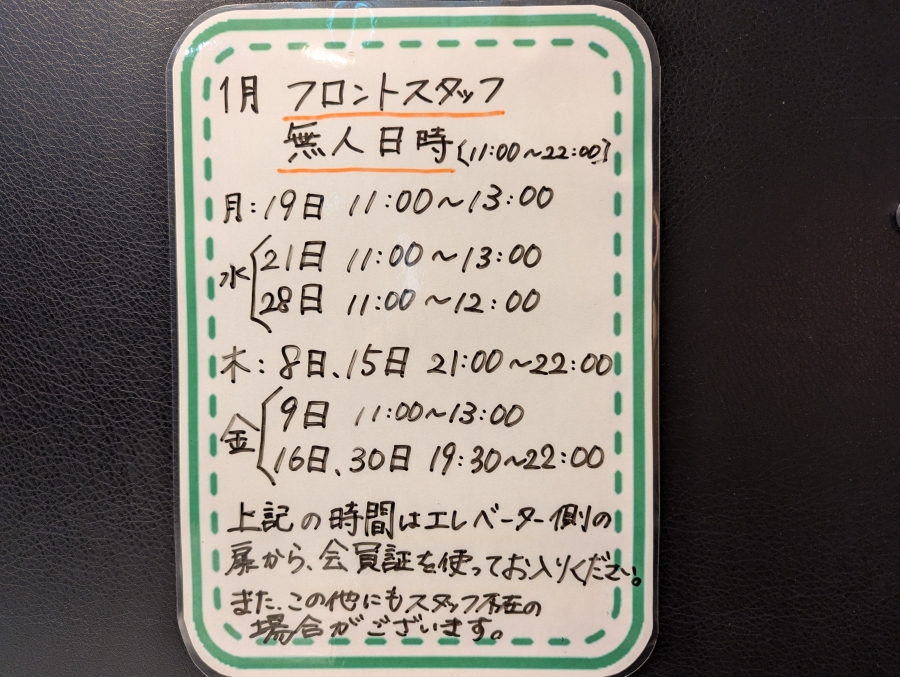 1月 フロントスタッフ
無人日時〔11:00~22:00〕
月:19日 11:00~13:00
水 21日 11:00~13:00
28日 11:00~12:00
木:8日、15日 21:00~22:00
金 9日 11:00~13:00
16日、30日 19:30~22:00
上記の時間はエレベーター側の
扉から、会員証を使ってお入りください。
また、この他にもスタッフ不在の
場合がございます。